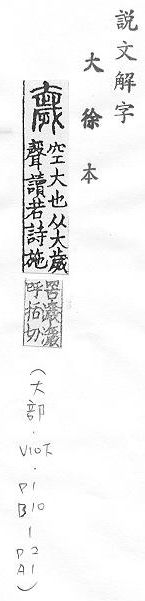 説文解字
大徐本
奯
空大也从大歲
聲讀若詩施
罟濊濊
呼括切
（大部．V10下．